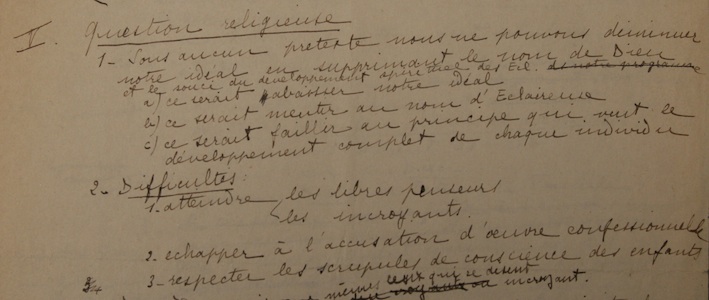 V. Question religieuse
1- Sous aucun pretexte nous ne pouvons diminuer
notre idéal en supprimant le nom de Dieu
et le souci du développement spirituel des Ecl. ds notre programme
a) ce serait rabaisser notre idéal
b) ce serait mentir au nom d'Eclaireuse
c) ce serait faillir au principe qui veut le
développement complet de chaque individu
2- Difficultés:
1. atteindre les libres penseurs
les incroyants.
2. echapper à l'accusation d'œuvre confessionnelle
3- respecter les scrupules de conscience des enfants
mêmes ceux qui se disent
ou incroyant.